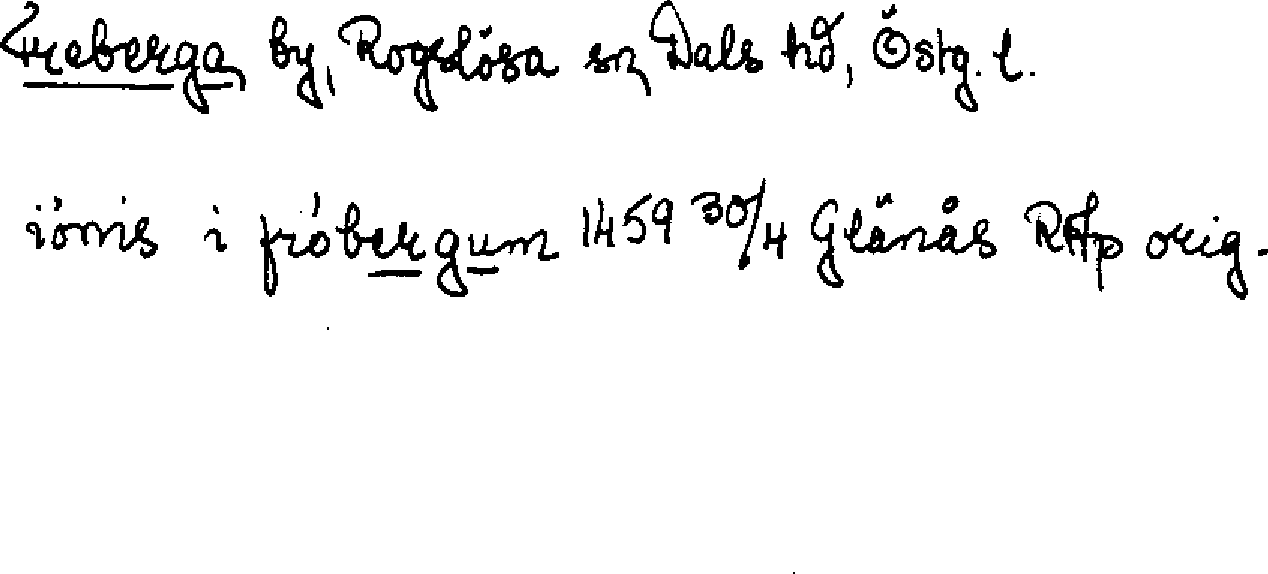 Freberga, by, Rogslösa sn, Dals hd, Östg. l.
iönis i fróbergum 1459 30/4 Glänås RAp orig.